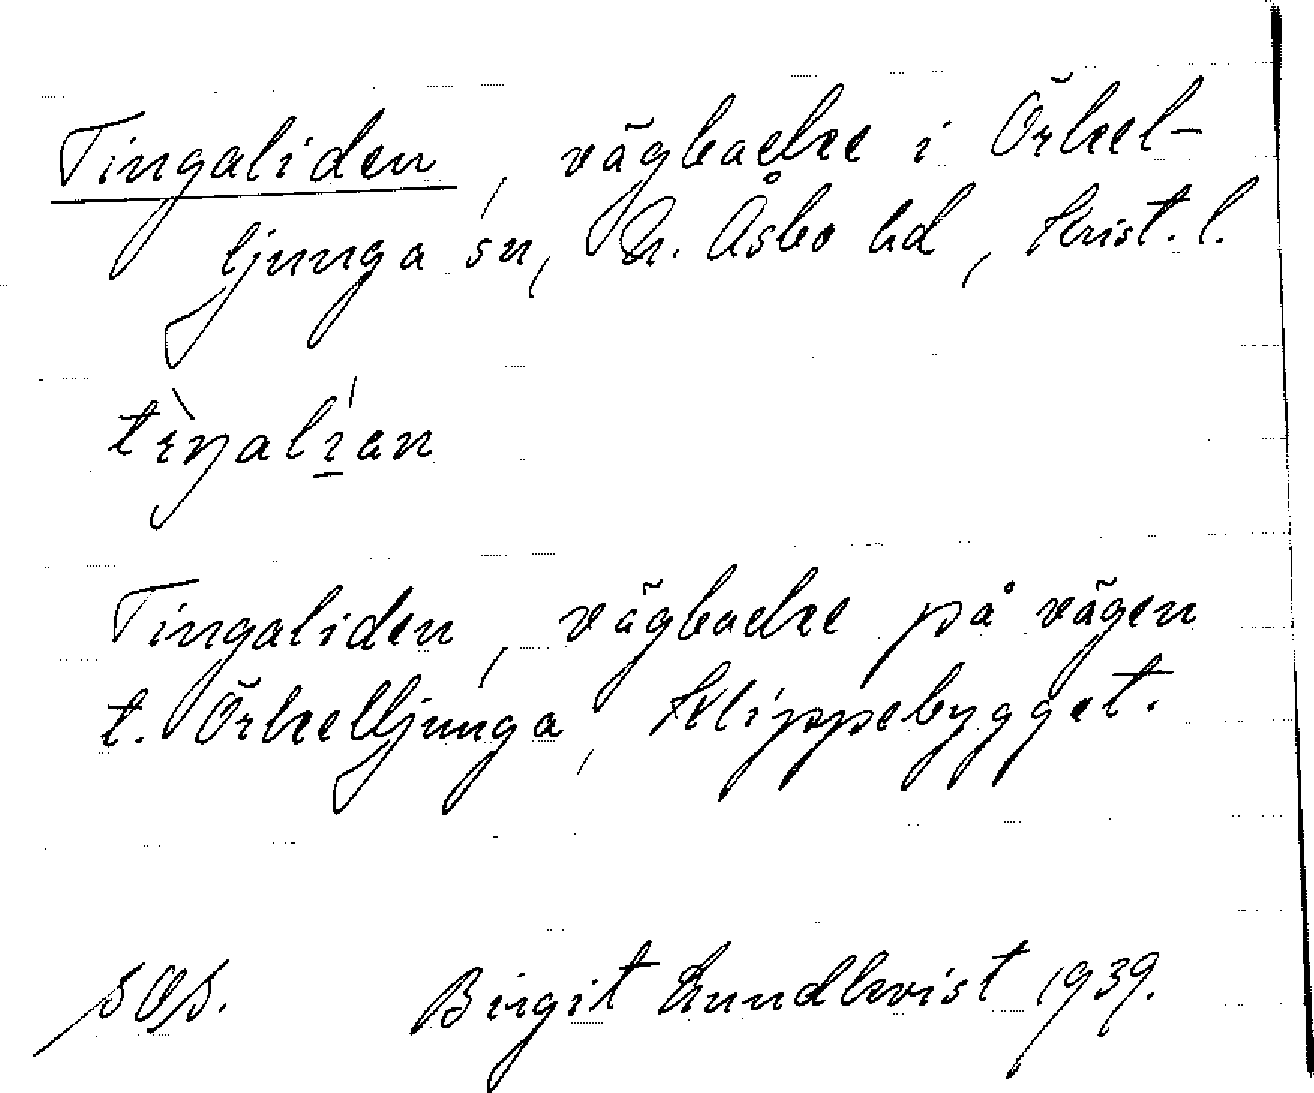 Tingaliden, vägbacke i Örkel-
ljunga sn, N. Åsbo hd, Krist. l.
tìŋalí̱an
Tingaliden, vägbacke på vägen
t. Örkelljunga, Klippebygget.
Birgit Lundkvist 1939.